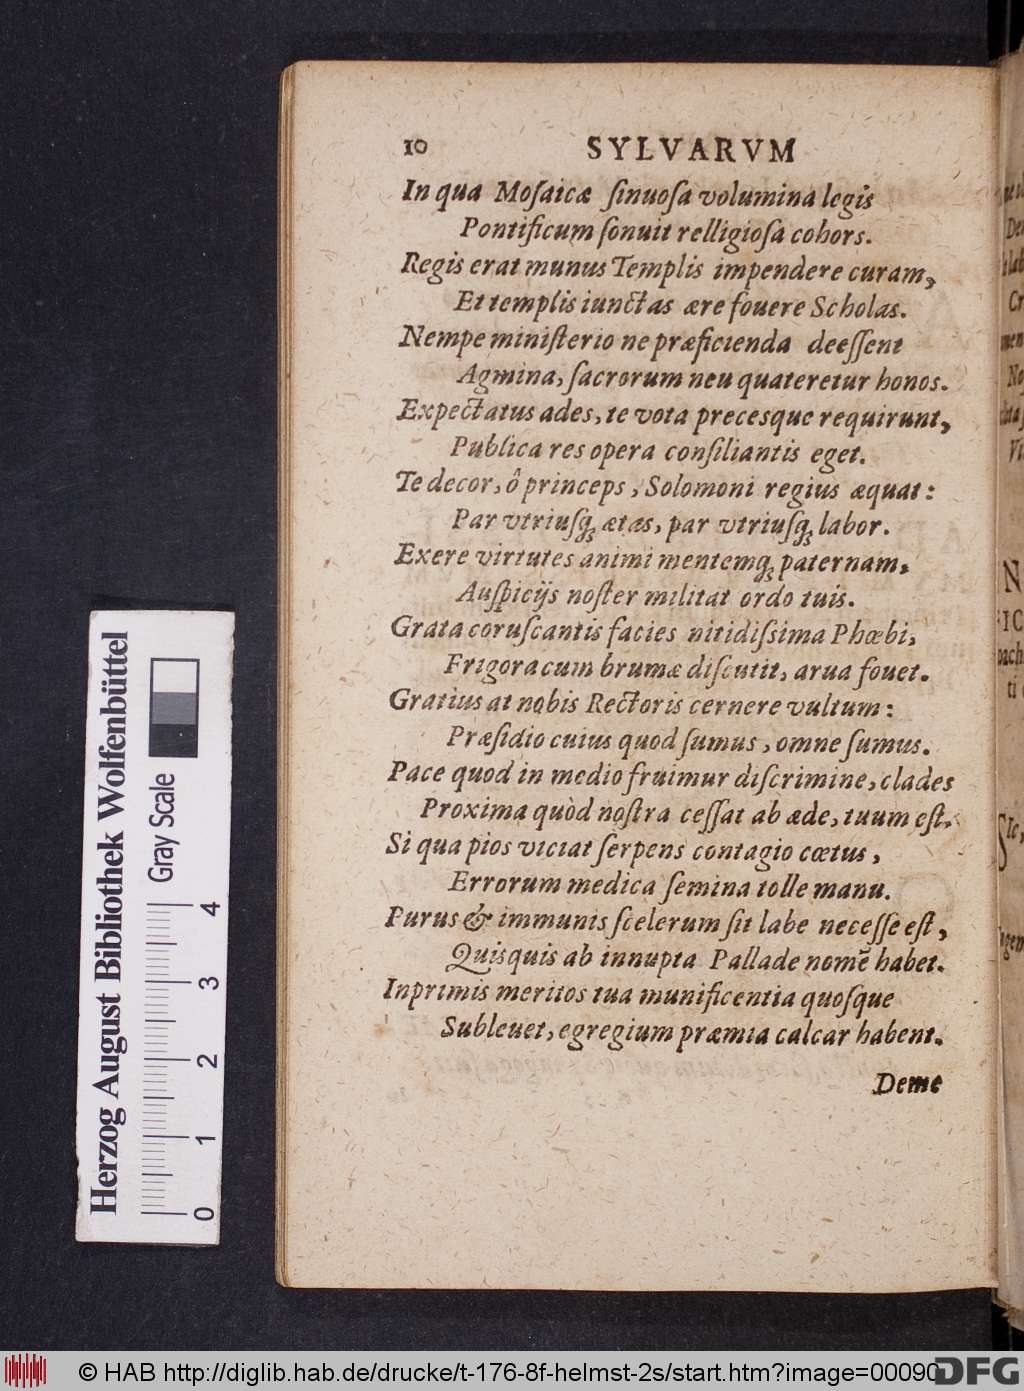 10 SYLVARVM
In qua Moſaicæ ſinuoſa volumina legis
Pontificum ſonuit relligioſa cohors.
Regis erat munus Templis impendere curam,
Et templis iunctas ære fouere Scholas.
Nempe miniſterio ne præficienda deeſſent
Agmina, ſacrorum neu quateretur honos.
Expectatus ades, te vota precesque requirunt,
Publica res opera conſiliantis eget.
Te decor, ô princeps, Solomoni regius æquat:
Par vtriuſq́; ætas, par vtriuſq́; labor.
Exere virtutes animi mentemq́; paternam,
Auſpicijs noſter militat ordo tuis.
Grata coruſcantis facies nitidiſsima Phœbi,
Frigora cum brumæ diſcutit, arua fouet.
Gratius at nobis Rectoris cernere vultum:
Præſidio cuius quod ſumus, omne ſumus.
Pace quod in medio fruimur diſcrimine, clades
Proxima quòd noſtra ceſſat ab æde, tuum eſt.
Si qua pios viciat ſerpens contagio cœtus,
Errorum medica ſemina tolle manu.
Purus & immunis ſcelerum ſit labe neceſſe eſt,
Quisquis ab innupta Pallade nomẽ habet.
Inprimis meritos tua munificentia quoſque
Subleuet, egregium præmia calcar habent.
Deme
Herzog August Bibliothek Wolfenbüttel
Gray Scale
0 1 2 3 4
© HAB http://diglib.hab.de/drucke/t-176-8f-helmst-2s/start.htm?image=00090
DFG